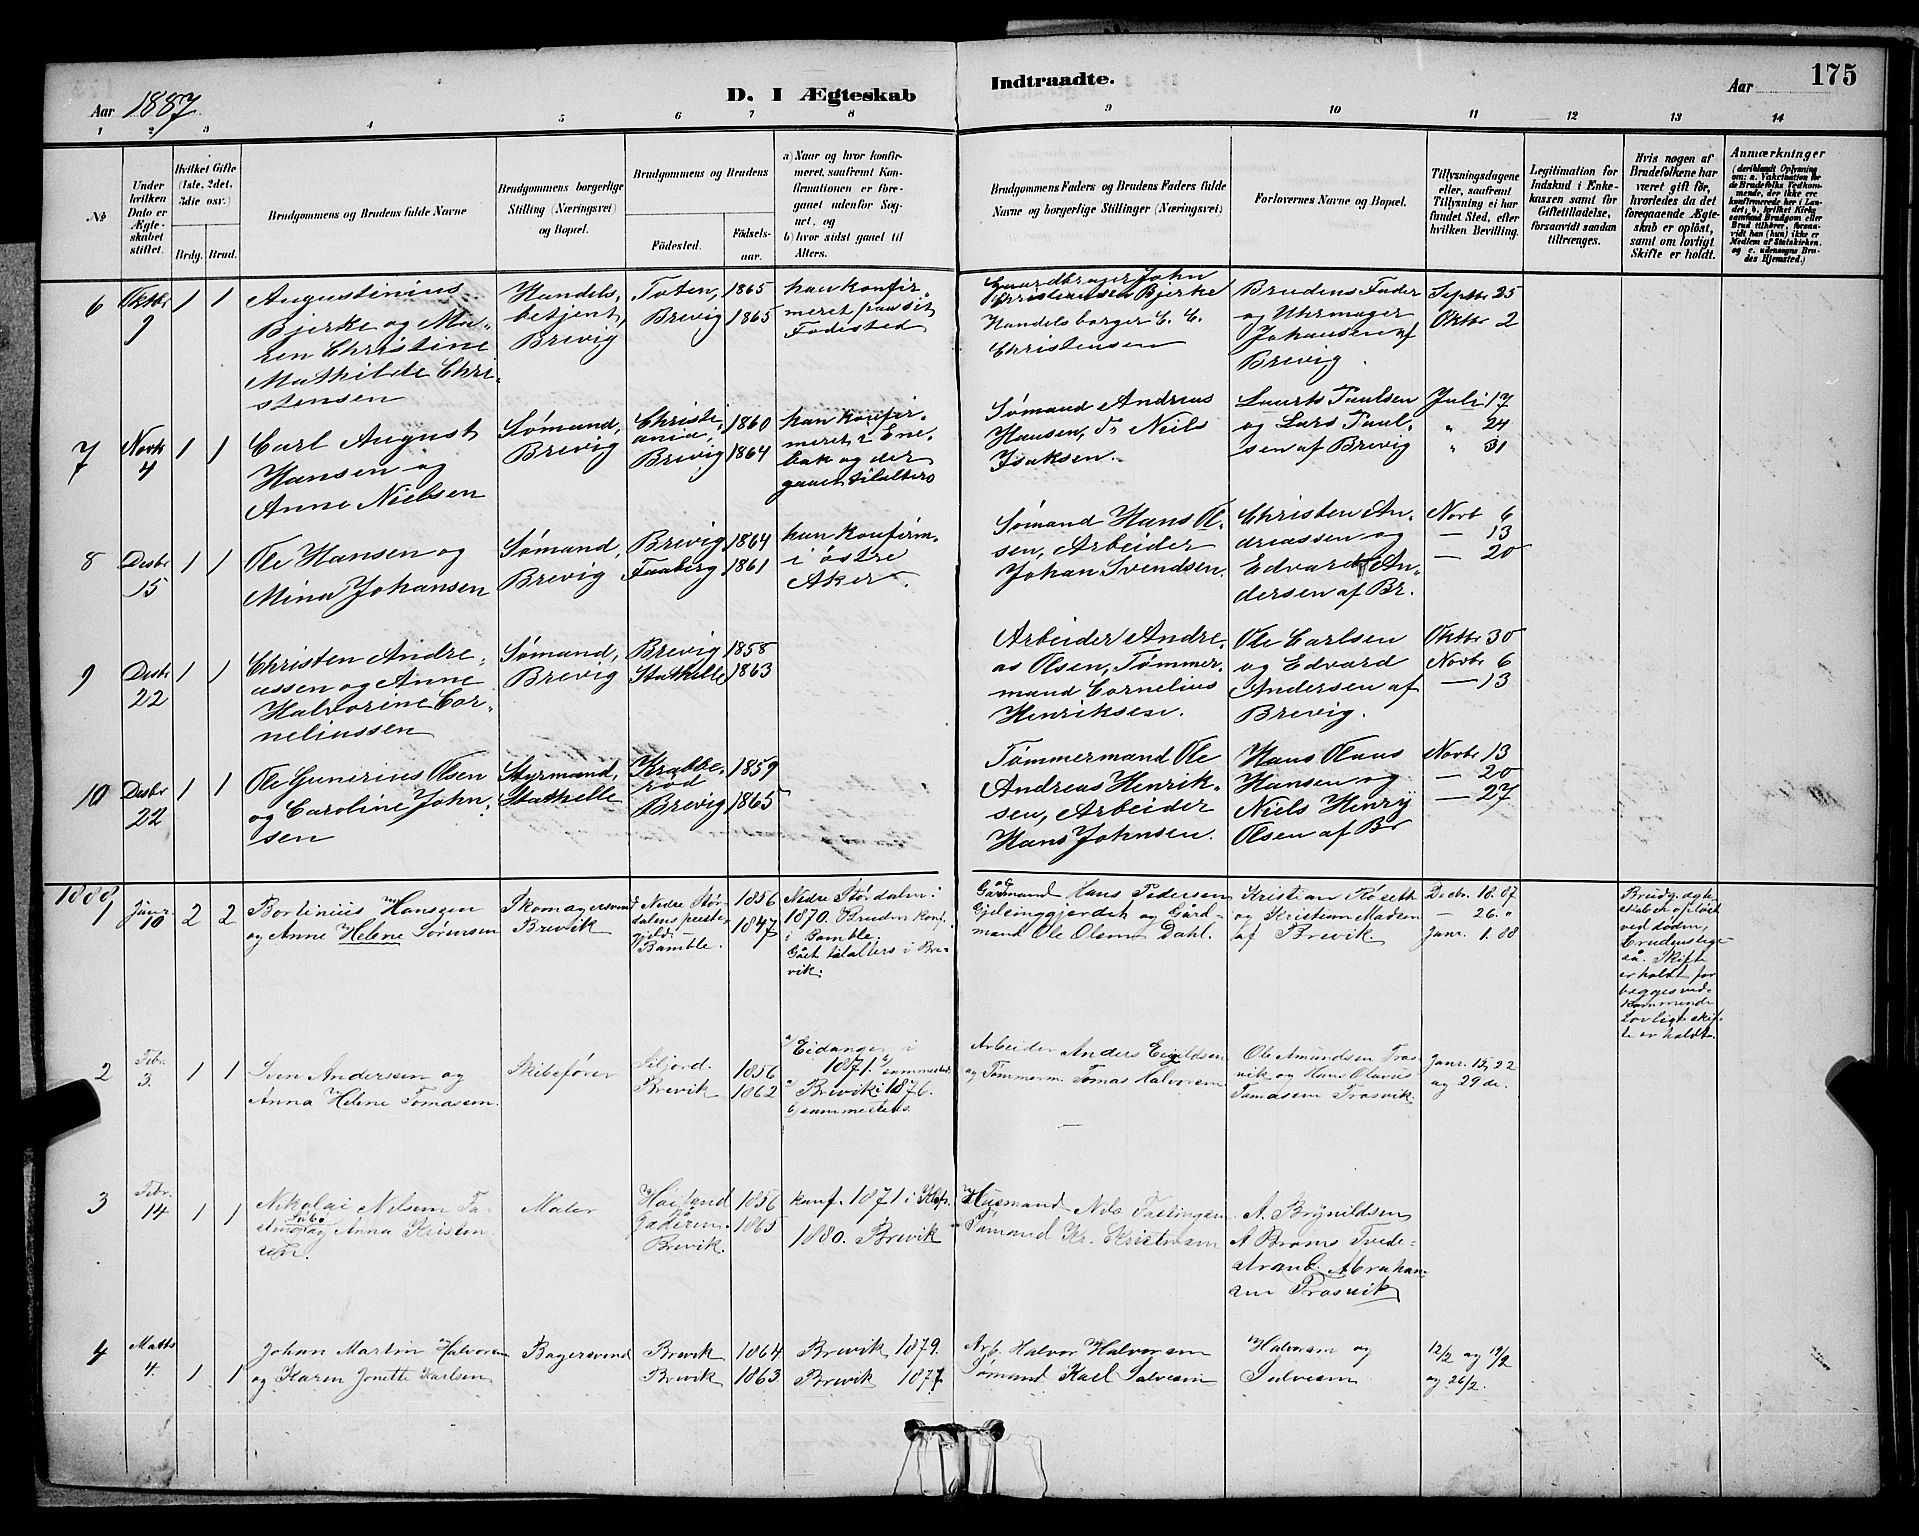 175
Aar 1887.
D. I Ægteskab Indtraadte.
Aar
1 2 3 4 5 6 7 8 9 10 11 12 13 14
No
Under hvilken Dato er Ægteskabet stiftet.
Hvilket Gifte (1ste, 2det, 3die osv.)
Brdg. Brud.
Brudgommens og Brudens fulde Navne
Brudgommens borgerlige Stilling (Næringsvei) og Bopæl.
Brudgommens og Brudens
Födested.
Födselsaar.
a) Naar og hvor konfirmeret, saafremt Konfirmationen er foregaaet udenfor Sognet, og
b) hvor sidst gaaet til Alters.
Brudgommens Faders og Brudens Faders fulde Navne og borgerlige Stillinger (Næringsvei)
Forlovernes Navne og Bopæl.
Tillysningsdagene eller, saafremt Tillysning ei har fundet Sted, efter hvilken Bevilling.
Legitimation for Indskud i Enkekassen samt for Giftetilladelse, forsaavidt saadan tiltrænges.
Hvis nogen af Brudefolkene har været gift för, hvorledes da det foregaaende Ægteskab er oplöst, samt om lovligt Skifte er holdt.
Anmærkninger
(deriblandt Oplysning om: a. Vakcination for de Brudefolks Vedkommende, der ikke ere konfirmerede her i Landet, b. hvilket Kirkesamfund Brudgom eller Brud tilhörer, forsaavidt han (hun) ikke er Medlem af Statskirken, og c. udensogns Brudes Hjemsted.)
6 Oktbr 9 1 1
Augustinius
Bjerke og Ma-
ren Christine
Mathilde Chri-
stensen
Handels-
betjent,
Brevig
Toten, 1865
Brevig 1865
han konfir-
meret paa sit
Fødested
Gaardbruger John
Christiansen Bjerke
Handelsborger C. E.
Christensen
Brudens Fader
og Uhrmager
Johansen af
Brevig.
Septbr 25
Oktbr 2
7 Novb 4 1 1
Carl August
Hansen og
Anne Nielsen
Sømand,
Brevig
Christi-
ania, 1860
Brevig 1864
han konfir-
meret i Ene-
bak og der
gaaet til alters
Sømand Andreas
Hansen, do Niels
Isaksen.
Laurts Paulsen
og Lars Paul-
sen af Brevig
Juli 17
" 24
" 31
8 Desbr 15 1 1
Ole Hansen og
Mina Johansen
Sømand,
Brevig
Brevig 1864
Faaberg 1861
han konfirm.
i østre
Aker.
Sømand Hans Ol-
sen, Arbeider
Johan Svendsen.
Christen An-
dreassen og
Edvard An-
dersen af Br.
Novb 6
— 13
— 20
9 Desbr 22 1 1
Christen Andre-
assen og Anne
Halvorine Cor-
neliussen
Sømand,
Brevig
Brevig 1858
Stathelle 1863
Arbeider Andre-
as Olsen, Tømmer-
mand Cornelius
Henriksen.
Ole Carlsen
og Edvard
Andersen af
Brevig.
Oktbr 30
Novbr 6
— 13
10 Desbr 22 1 1
Ole Gunerius Olsen
og Caroline John-
sen
Styrmand,
Stathelle
Krabbe-
rød 1859
Brevig 1865
Tømmermand Ole
Andreas Henrik-
sen, Arbeider
Hans Johnsen.
Hans Claus
Hansen og
Niels Henry
Olsen af Br
Novbr 13
— 20
— 27
1888
1 Januar 10 2 2
Bortinius Hansen
og Anne Helene Sörensen
Skomagersvend
Brevik
Nedre Stør-
dalens preste-
gjeld. 1856
Bamble. 1847
Nedre Størdalen i
1870. Bruden konf.
i Bamble.
Gået tilalters i Bre-
vik.
Gårdmand Hans Pedersen
Gjeleinggjerdet og Gård-
mand Ole Olsen Dahl.
Kristian Röseth
og Kristian Madsen
af Brevik
Decbr. 18. 87
— 26. "
Janr. 1. 88
Brudg. ægte-
skab er opløst
ved døden,
brudens lige-
så. Skifte
er holdt for
begges ved-
kommende
Lovligt skif-
te er holdt.
2 Febr. 3. 1 1
Sven Anderssen og
Anna Helene Tomassen.
Skibsfører
Siljord. 1856
Brevik 1862
a/ Eidanger i
1871. b/ sammesteds
a/ Brevik i 1876.
b/ sammesteds.
Arbeider Anders Eigildsen
og Tömmerm. Tomas Halvorsen
Ole Amundsen Tras-
vik og Hans Olavus
Tomassen Trosvik.
Janr. 15, 22
og 29 de.
3 Febr. 14 1 1
Nikolai Nilsen
og Anna Kristen-
sen.
Maler
Høiland 1856
Jæderen. 1865
Brevik.
konf. 1871 i
1880. Brevik
Husmand Nils
Sømand Kr. Kristensen
A. Brynildsen
A Broms Tvede-
strand. Abraham-
sen Trosvik
4 Marts 4. 1 1
Johan Martin Halvorsen
og Karen Jonette Karlsen
Bagersvend
Brevik 1864
Brevik 1863
Brevik 1879.
Brevik 1877
Arb. Halvor Halvorsen
Sømand Karl Salvesen
Halvorsen og
Salvesen
12/2 og 19/2
og 26/2.